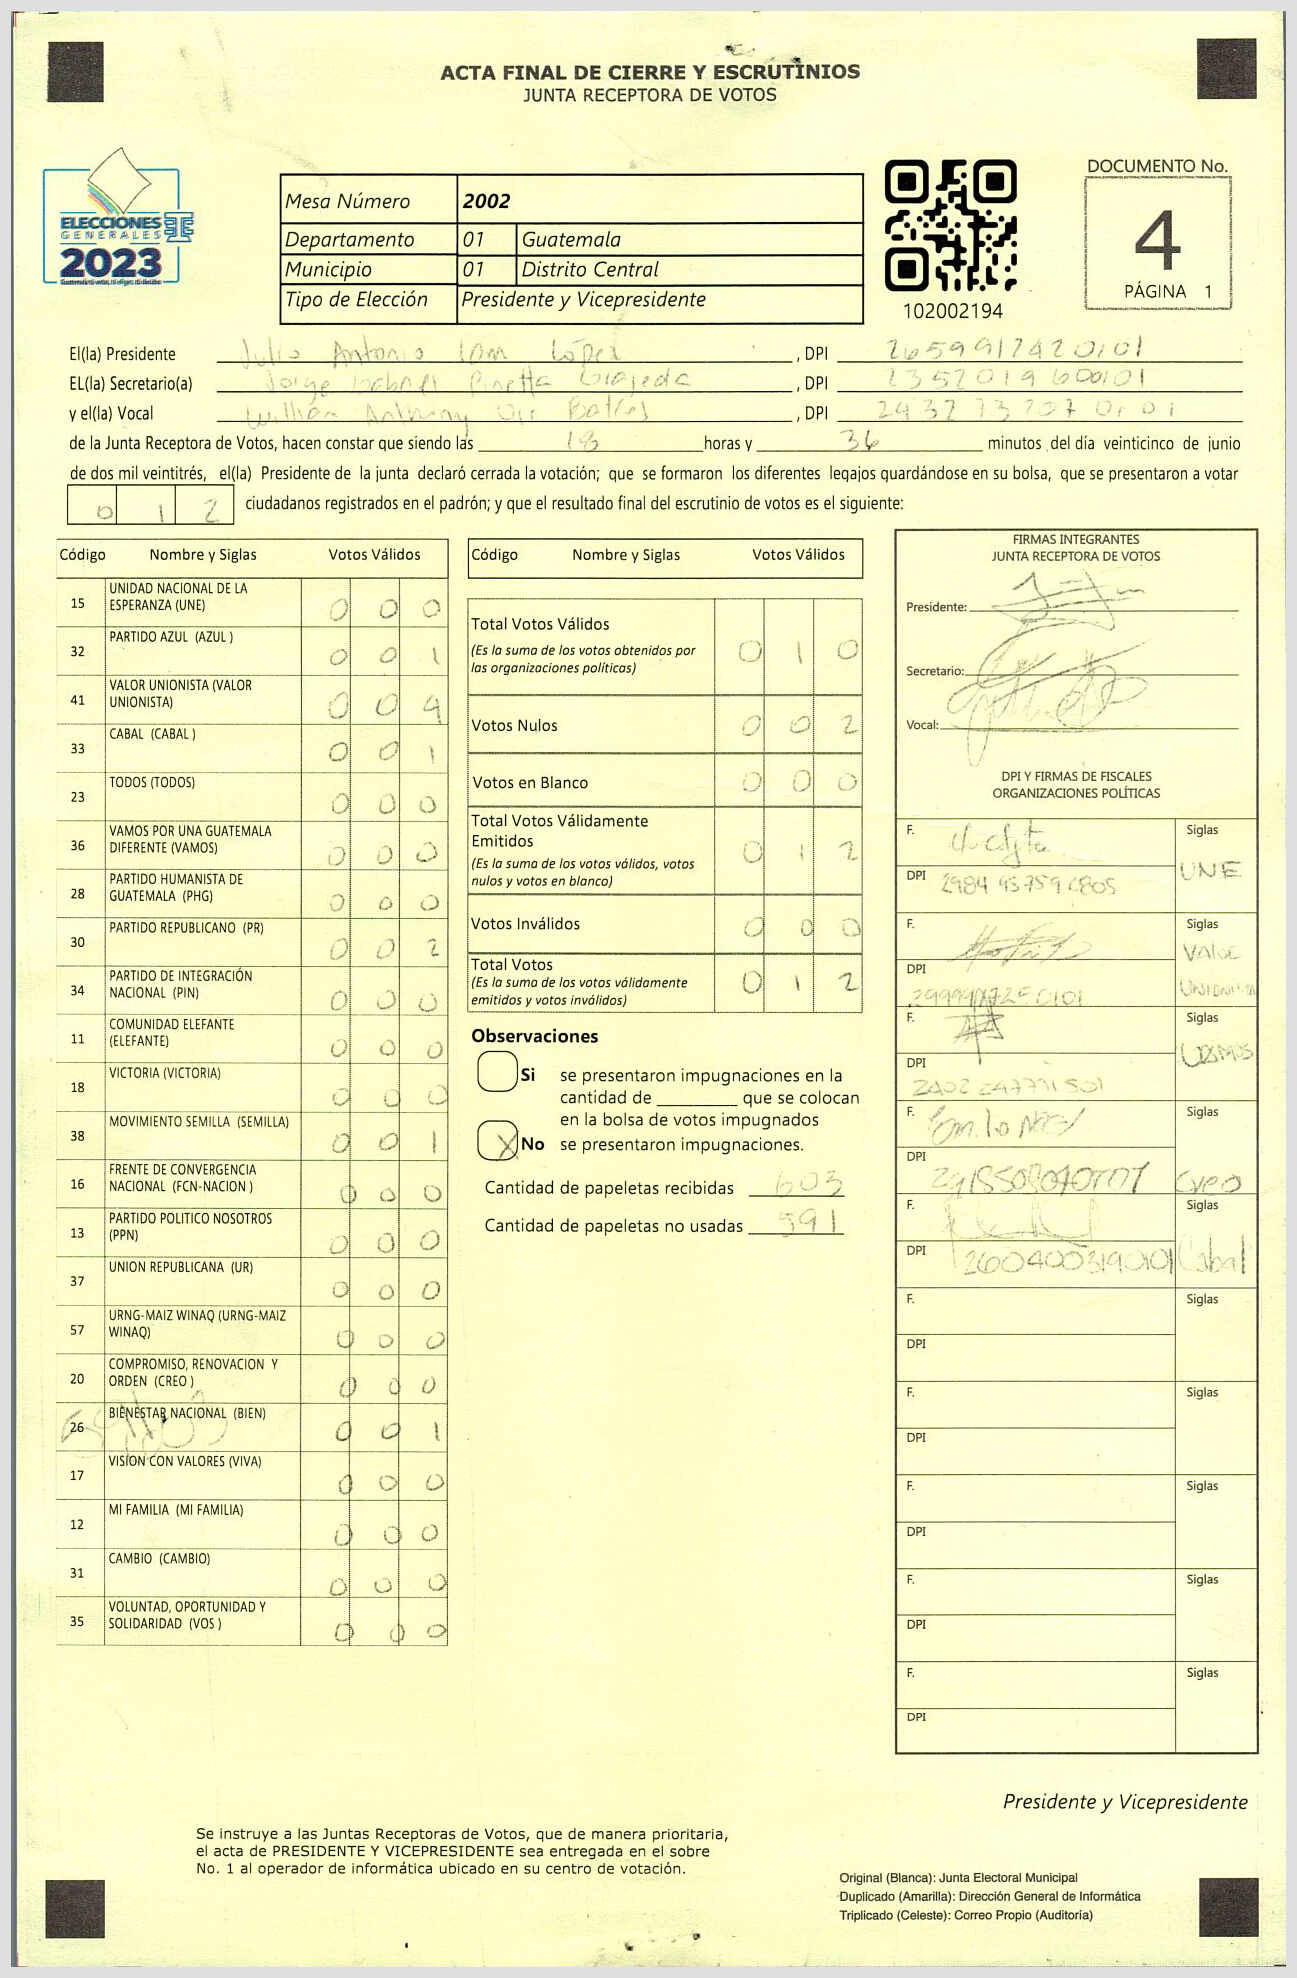 ACTA FINAL DE CIERRE Y ESCRUTINIOS
JUNTA RECEPTORA DE VOTOS
ELECCIONES
GENERALES
2023
Mesa Número 2002
Departamento 01 Guatemala
Municipio 01 Distrito Central
Tipo de Elección Presidente y Vicepresidente
102002194
DOCUMENTO No.
4
PÁGINA 1
El(la) Presidente Julio Antonio López , DPI
EL(la) Secretario(a) Jorge , DPI
y el(la) Vocal Anthony , DPI
de la Junta Receptora de Votos, hacen constar que siendo las 18 horas y 36 minutos del día veinticinco de junio
de dos mil veintitrés, el(la) Presidente de la junta declaró cerrada la votación; que se formaron los diferentes legajos guardándose en su bolsa, que se presentaron a votar
0 1 2 ciudadanos registrados en el padrón; y que el resultado final del escrutinio de votos es el siguiente:
Código Nombre y Siglas Votos Válidos
15 UNIDAD NACIONAL DE LA
ESPERANZA (UNE) 0 0 0
32 PARTIDO AZUL (AZUL ) 0 0 1
41 VALOR UNIONISTA (VALOR
UNIONISTA) 0 0 4
33 CABAL (CABAL ) 0 0 1
23 TODOS (TODOS) 0 0 0
36 VAMOS POR UNA GUATEMALA
DIFERENTE (VAMOS) 0 0 0
28 PARTIDO HUMANISTA DE
GUATEMALA (PHG) 0 0 0
30 PARTIDO REPUBLICANO (PR) 0 0 2
34 PARTIDO DE INTEGRACIÓN
NACIONAL (PIN) 0 0 0
11 COMUNIDAD ELEFANTE
(ELEFANTE) 0 0 0
18 VICTORIA (VICTORIA) 0 0 0
38 MOVIMIENTO SEMILLA (SEMILLA) 0 0 1
16 FRENTE DE CONVERGENCIA
NACIONAL (FCN-NACION ) 0 0 0
13 PARTIDO POLITICO NOSOTROS
(PPN) 0 0 0
37 UNION REPUBLICANA (UR) 0 0 0
57 URNG-MAIZ WINAQ (URNG-MAIZ
WINAQ) 0 0 0
20 COMPROMISO, RENOVACION Y
ORDEN (CREO ) 0 0 0
26 BIENESTAR NACIONAL (BIEN) 0 0 1
17 VISION CON VALORES (VIVA) 0 0 0
12 MI FAMILIA (MI FAMILIA) 0 0 0
31 CAMBIO (CAMBIO) 0 0 0
35 VOLUNTAD, OPORTUNIDAD Y
SOLIDARIDAD (VOS ) 0 0 0
Código Nombre y Siglas Votos Válidos
Total Votos Válidos 0 1 0
(Es la suma de los votos obtenidos por
las organizaciones políticas)
Votos Nulos 0 0 2
Votos en Blanco 0 0 0
Total Votos Válidamente
Emitidos 0 1 2
(Es la suma de los votos válidos, votos
nulos y votos en blanco)
Votos Inválidos 0 0 0
Total Votos 0 1 2
(Es la suma de los votos válidamente
emitidos y votos inválidos)
Observaciones
Si se presentaron impugnaciones en la
cantidad de ________ que se colocan
en la bolsa de votos impugnados
X No se presentaron impugnaciones.
Cantidad de papeletas recibidas 603
Cantidad de papeletas no usadas 591
FIRMAS INTEGRANTES
JUNTA RECEPTORA DE VOTOS
Presidente:
Secretario:
Vocal:
DPI Y FIRMAS DE FISCALES
ORGANIZACIONES POLÍTICAS
F. Siglas
DPI UNE
F. Siglas
DPI VALOR
UNIONISTA
F. Siglas
DPI VAMOS
F. Siglas
DPI Creo
F. Siglas
DPI 2604003190101 Cabal
F. Siglas
DPI
F. Siglas
DPI
F. Siglas
DPI
F. Siglas
DPI
F. Siglas
DPI
Presidente y Vicepresidente
Se instruye a las Juntas Receptoras de Votos, que de manera prioritaria,
el acta de PRESIDENTE Y VICEPRESIDENTE sea entregada en el sobre
No. 1 al operador de informática ubicado en su centro de votación.
Original (Blanca): Junta Electoral Municipal
Duplicado (Amarilla): Dirección General de Informática
Triplicado (Celeste): Correo Propio (Auditoría)